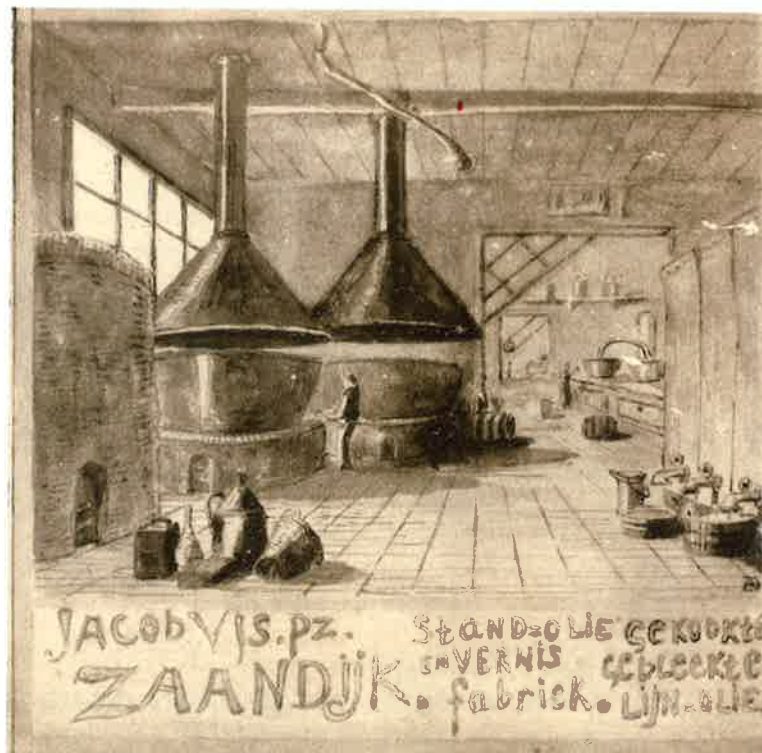 JACOb VIS. PZ.
ZAANDIJK.
StAND=OLIE
EN VERNIS
fabriek.
GEKOOKtE
GEbLEEKtE
LIJN=OLIE